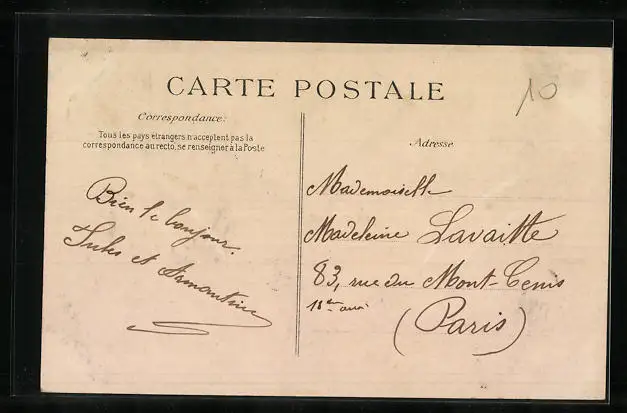 CARTE POSTALE
10
Correspondance.
Tous les pays étrangers n'acceptent pas la
correspondance au recto, se renseigner à la Poste
Adresse
Bien le bonjour.
Jules et Armantine
Mademoiselle
Madeleine Lavaitte
83, rue du Mont-Cenis
18ème arr
(Paris)